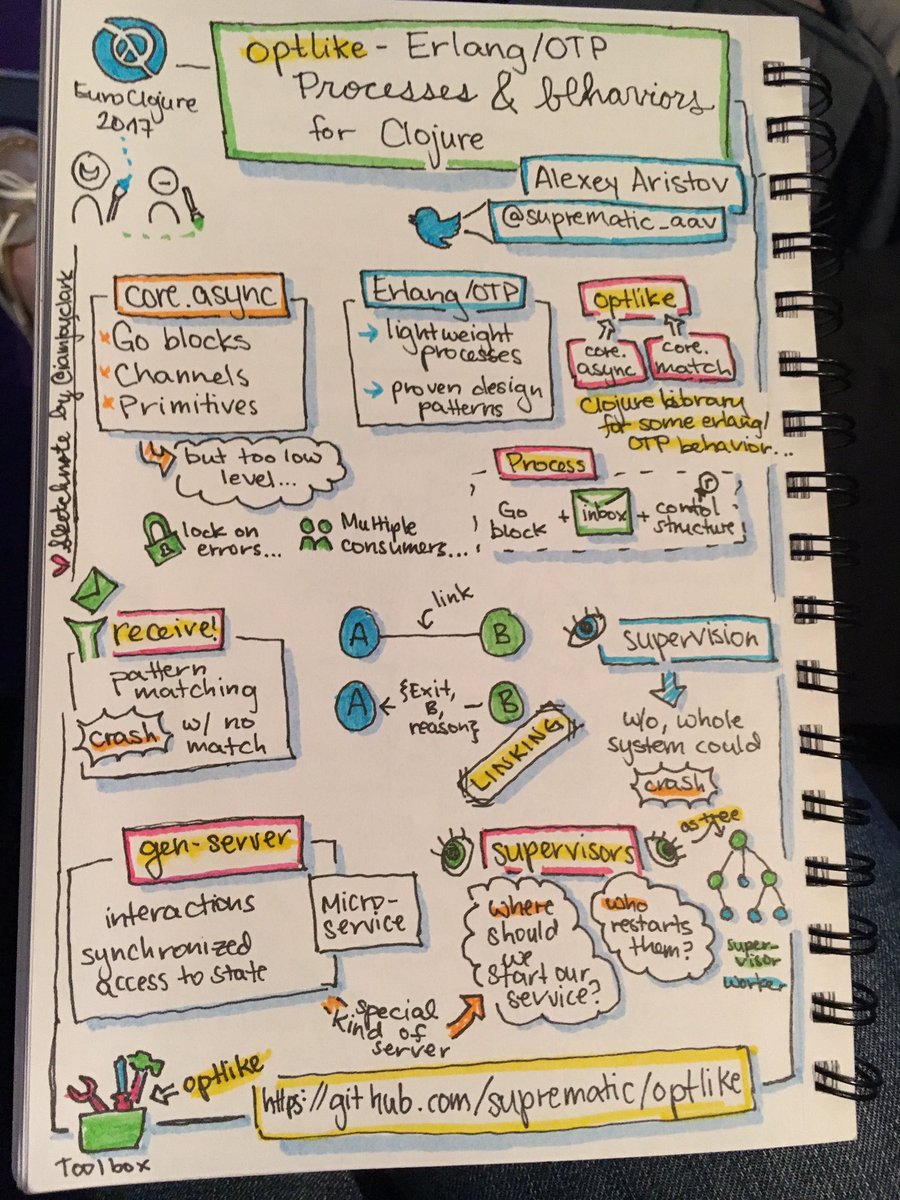 EuroClojure
2017
optlike - Erlang/OTP
Processes & behaviors
for Clojure
Alexey Aristov
@suprematic_aav
Sketchnote by @iamjayclark
core.async
Go blocks
Channels
Primitives
but too low
level...
lock on
errors...
Multiple
consumers...
Erlang/OTP
lightweight
processes
proven design
patterns
optlike
core.
async
core.
match
Clojure library
for some erlang/
OTP behavior...
Process
Go
block
+
inbox
+
control
structure
receive!
pattern
matching
crash w/ no
match
link
A
B
A
{Exit,
B,
reason}
B
LINKING
supervision
w/o, whole
system could
crash
gen-server
interactions
synchronized
access to state
Micro-
service
special
kind of
server
supervisors
where
should
we
start our
service?
who
restarts
them?
as tree
super-
visor
worker
optlike
Toolbox
https://github.com/suprematic/optlike